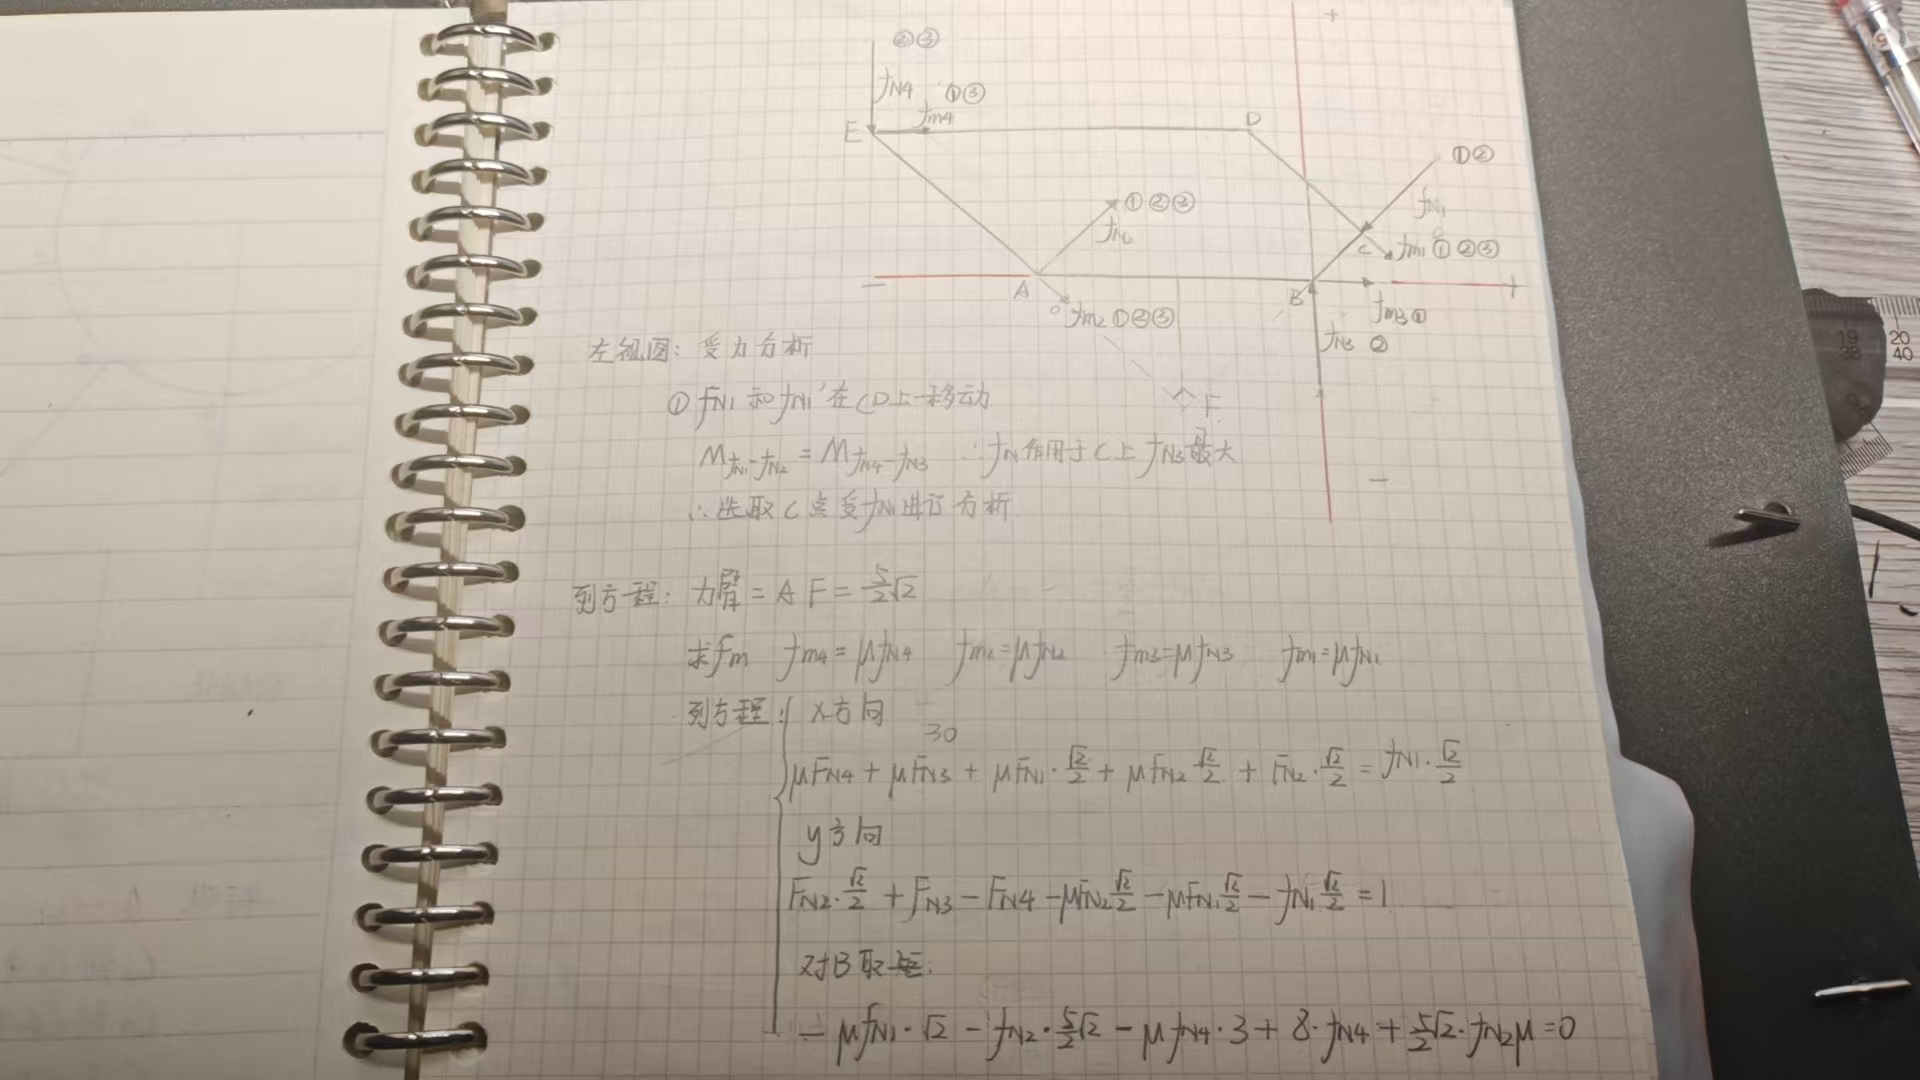 +
②③
fN4 ①③
fm4
E D
①②
fN1
①②③
fN2
C fm1 ①②③
− A B +
fm2 ①②③
fm3 ①
fN3 ②
F
−
19 20
40
左视图: 受力分析
① FN1 和 fN1' 在CD上移动
MfN1-fN2 = MfN4-fN3 ∴fN1作用于C上 fN3最大
∴选取C点受fN1进行分析
列方程: 力臂 = AF = 5/2√2
求fm fm4 = μfN4 fm2 = μfN2 fm3 = μfN3 fm1 = μfN1
列方程: x方向
30
μFN4 + μFN3 + μFN1·√2/2 + μFN2 √2/2 + FN2·√2/2 = fN1·√2/2
y方向
FN2·√2/2 + FN3 − FN4 − μFN2 √2/2 − μFN1 √2/2 − fN1 √2/2 = 1
对B取矩.
− μfN1·√2 − fN2·5/2√2 − μfN4·3 + 8·fN4 + 5/2√2·fN2μ = 0